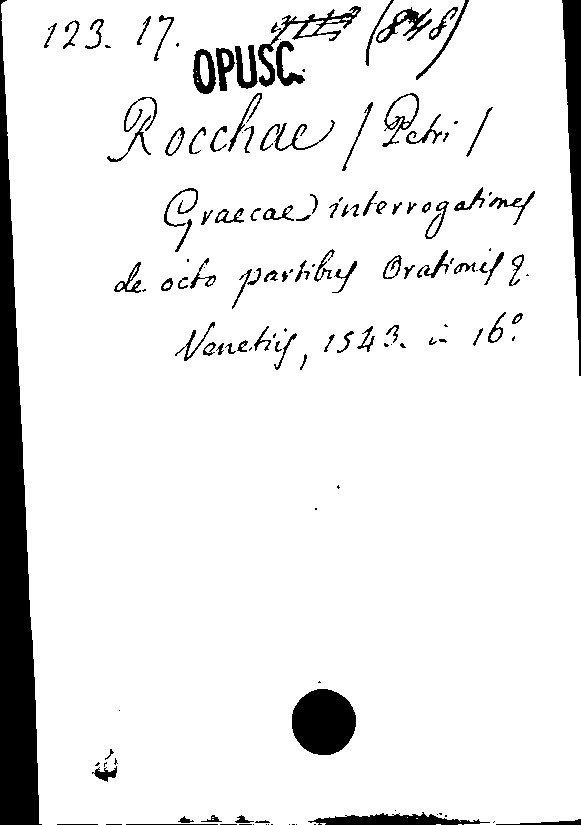 123. 17. (848)
OPUSC.
Rocchae / Petri /
Graecae interrogationes
de octo partibus Orationis q.
Venetiis, 1543. in 16°.